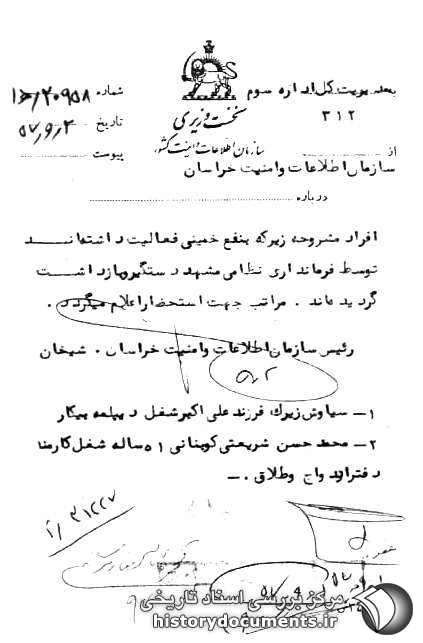 بمدیریت کل اداره سوم
۳۱۲
شماره ۲۰۹۵۸/
نخست وزیری
تاریخ ۵۷٫۹٫۲
سازمان اطلاعات وامنیت کشور
پیوست
از
سازمان اطلاعات وامنیت خراسان
درباره
افراد مشروحه زیرکه بنفع خمینی فعالیت داشته‌اند
توسط فرمانداری نظامی مشهد دستگیروبازداشت
گردیده‌اند . مراتب جهت استحضاراعلام میگردد .
رئیس سازمان اطلاعات وامنیت خراسان . شیخان
۱– سیاوش زیرک فرزند علی اکبرشغل دیپلمه بیکار
۲– محمد حسن شریعتی کوبنانی ۵۱ ساله شغل کارمند
دفترازدواج وطلاق .–
۳۱۲۲۷
مرکز بررسی اسناد تاریخی
historydocuments.ir